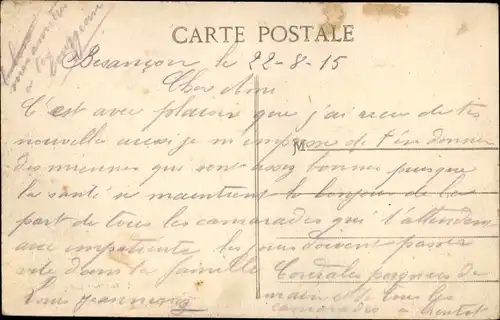 CARTE POSTALE
Besançon le 22-8-15
Cher Ami
C'est avec plaisir que j'ai recu de tes
nouvelle aussi je m'empresse de t'en donner
des miennes qui sont assez bonnes puisque
la santé se maintient le bonjour de la
part de tous les camarades qui t'attendent
avec impatiente les jours doivent passer
vite dans ta famille Cordiales poignées de
Louis main et de tous les
camarades a bientot